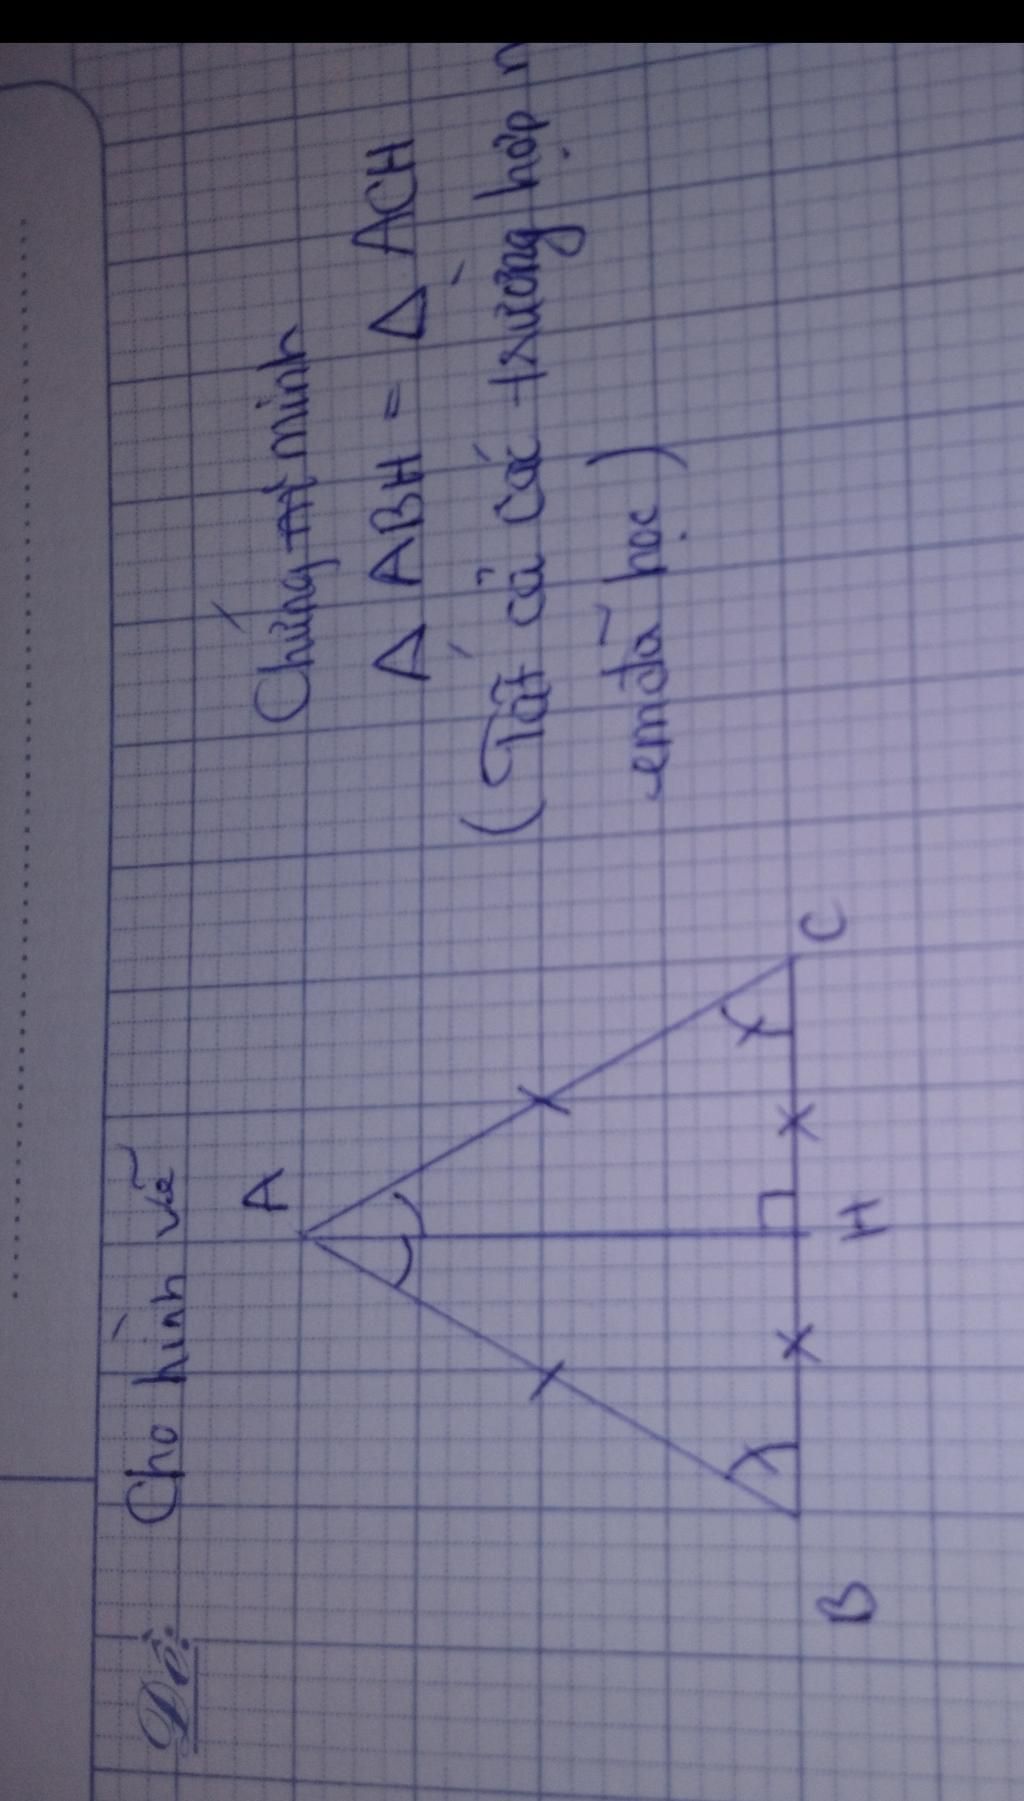 Đề: Cho hình vẽ
Chứng minh
Δ ABH = Δ ACH
(Tất cả các trường hợp
em đã học)
A
B
H
C